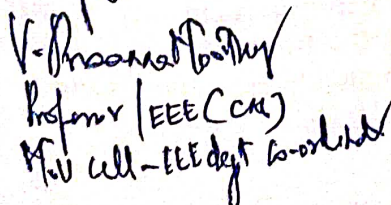 V. Prasanna Moorthy
Professor / EEE (CM)
MoU Cell - EEE dept Co-ordinator